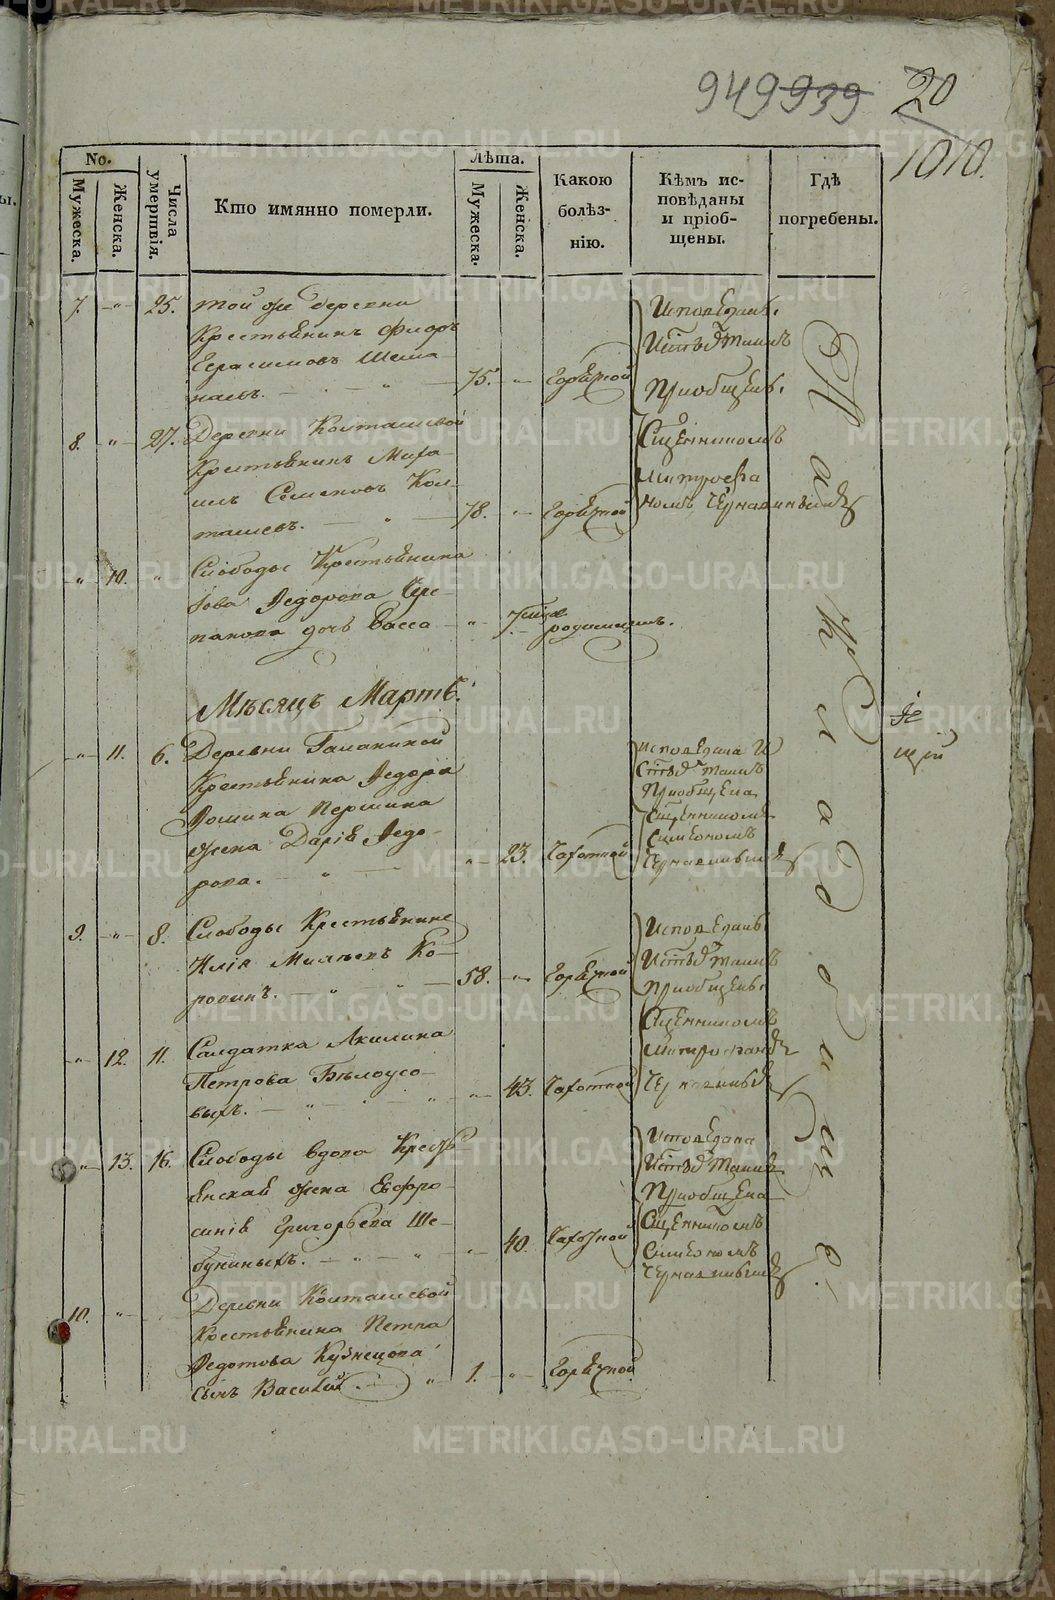 949 939 20
1010.
No.
Мужеска.
Женска.
Числа умерпвія.
Кто имянно померли.
Лѣта.
Мужеска.
Женска.
Какою болѣз-
нію.
Кѣмъ ис-
повѣданы
и пріоб-
щены.
Гдѣ
погребены.
7. -"- 25. той же деревни
Крестьянинъ Фиоръ
Герасимовъ
75. " Горячкой
Исповѣданъ.
И Святыхъ Таинъ
Приобщенъ.
8. " 27. Деревни Колташевой
Крестьянинъ Миха-
илъ Семеновъ Кол-
ташевъ. 78. " Горячкой
Священникомъ
Митрофа
номъ Чернавинымъ
" 10. " Слободы Крестьянина
Федорова Чере-
панова дочь Васса " родимцемъ.
Мѣсяцъ Мартъ.
" 11. 6. Деревни Галаниной
Крестьянина Федора
Фомина Першина
жена Дарія Федо-
рова. " 23. Чахоткой
Исповѣдана И
Святыхъ Таинъ
Приобщена
Священникомъ
Симеономъ
Чернавинымъ
9. -"- 8. Слободы Крестьянинъ
Илія Ко-
ровинъ. 58. " Горячкой
Исповѣданъ
И Святыхъ Таинъ
Приобщенъ.
Священникомъ
Митрофаномъ
Чернавинымъ
" 12. 11. Салдатка Акилина
Петрова Бѣлоусо-
выхъ. " 43. Чахоткой
" 13. 16. Слободы вдова Кресть
янская жена Евфро-
синія Григорьева Ше-
буниныхъ. " 40. Чахоткой
Исповѣдана
И Святыхъ Таинъ
Приобщена
Священникомъ
Симеономъ
Чернавинымъ
10. " Деревни Колташевой
Крестьянина Петра
Федотова Кузнецова
сынъ Василій. " 1. " Горячкой
На кладбище.
METRIKI.GASO-URAL.RU